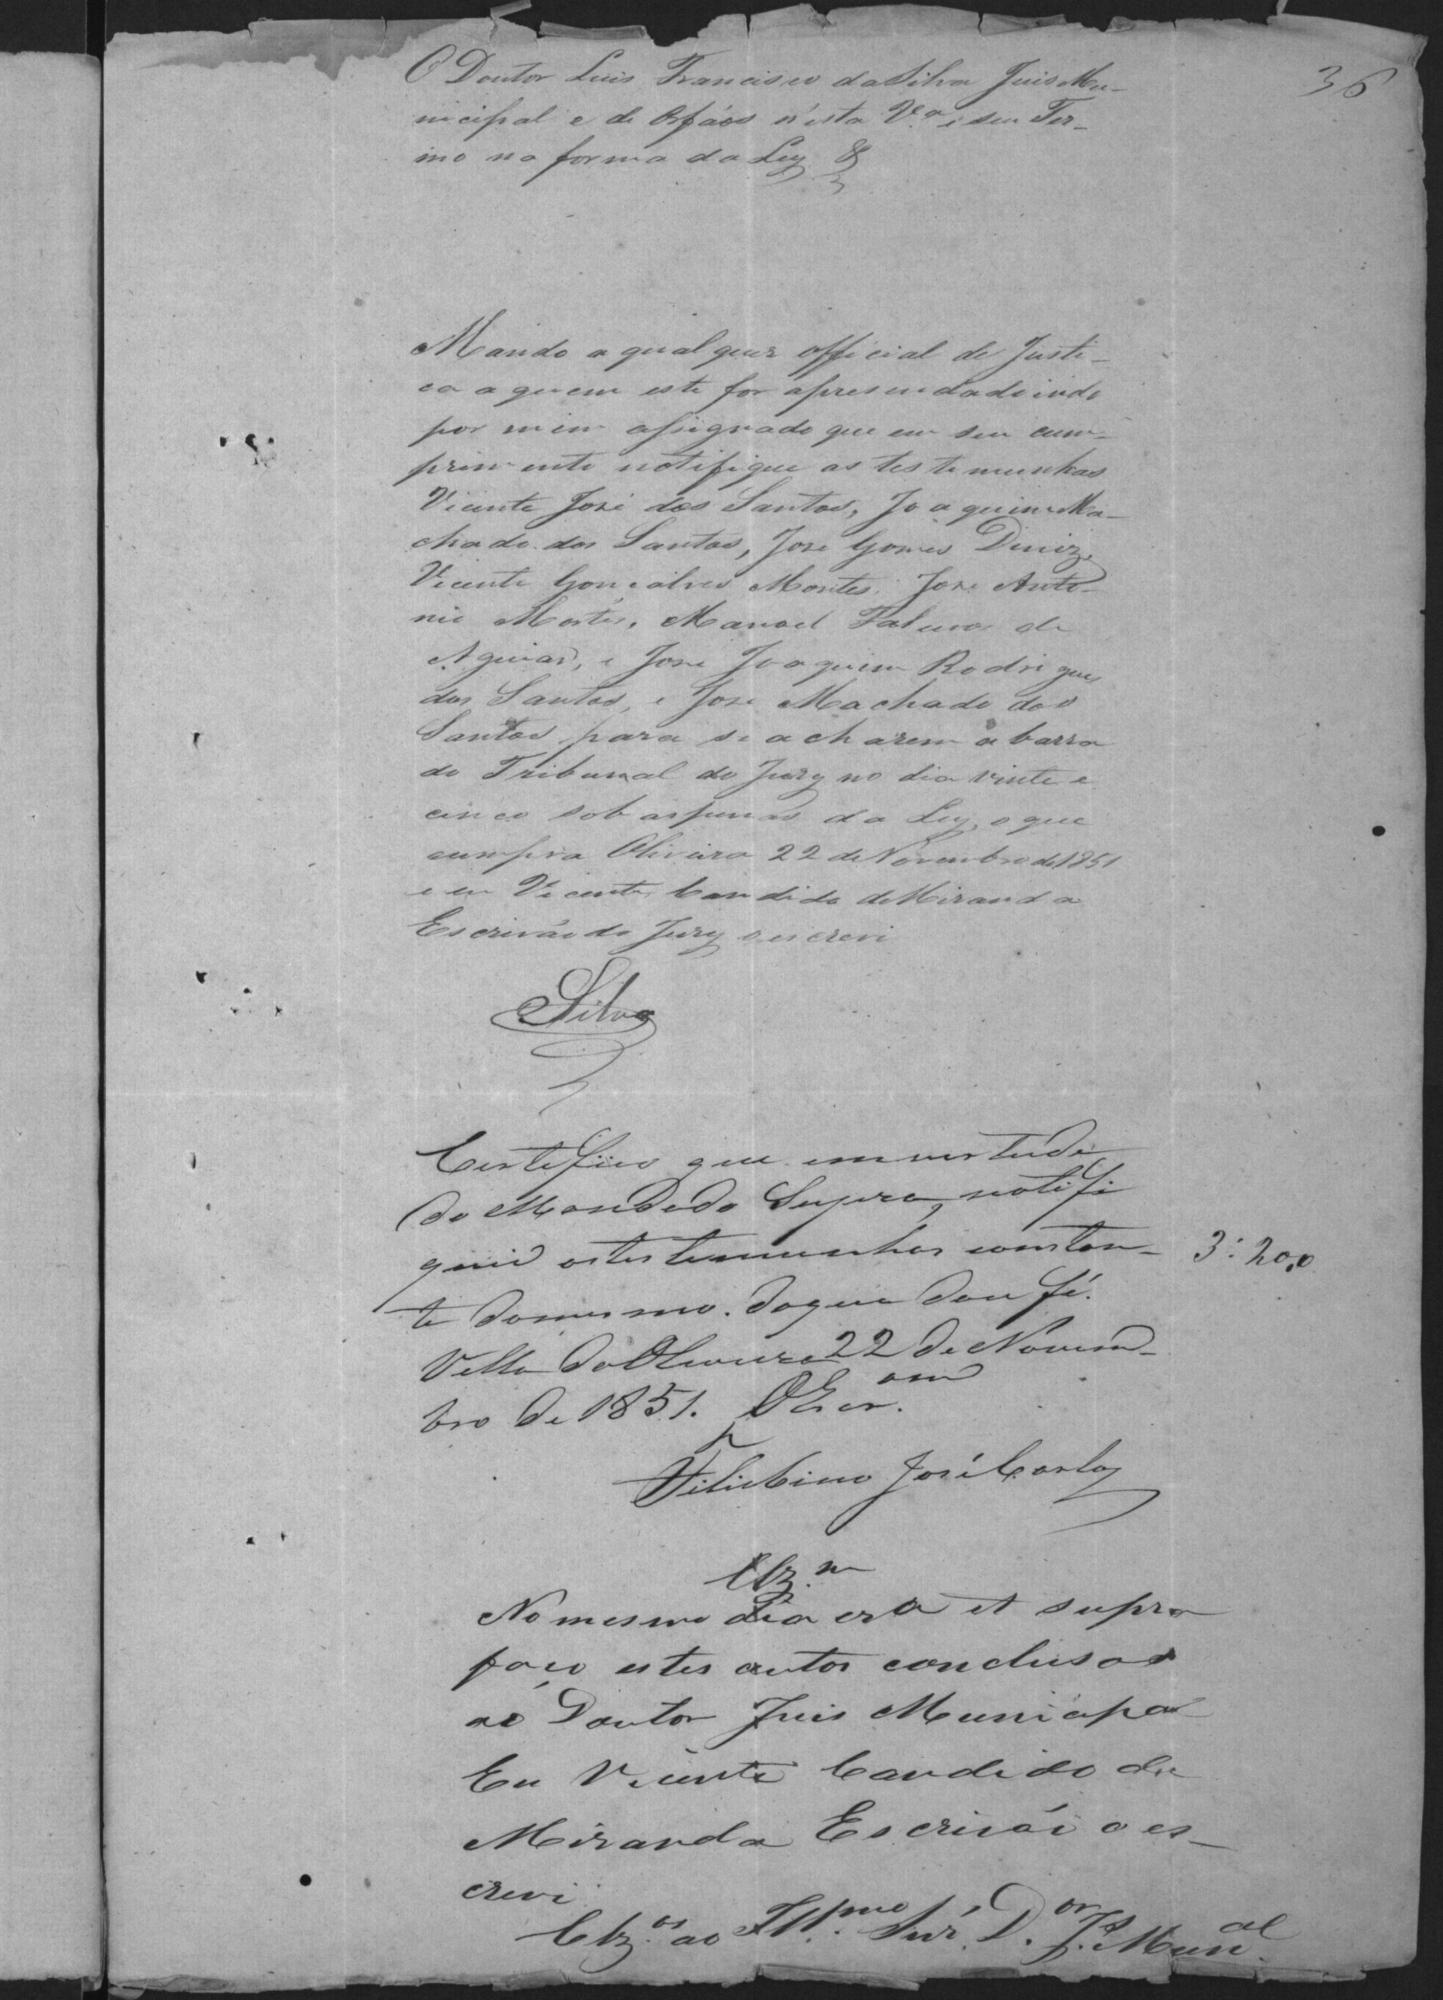 36
O Doutor Luis Francisco da Silva Juis Mu-
nicipal e de Orfãos n'esta V.ª e seu Ter-
mo na forma da Ley &
Mando a qualquer official de Justi-
ca a quem este for apresendado indo
por mim assignado que em seu cum-
primento notifique as testemunhas
Vicente José dos Santos, Joaquim Ma-
chado dos Santos, José Gomes Diniz,
Vicente Gonçalves Montes, José Anto-
nio Montes, Manoel de
Aguiar, e José Joaquim Rodrigues
dos Santos, e José Machado dos
Santos para se acharem a barra
do Tribunal do Jury no dia vinte e
cinco sob as penas da Ley, o que
cumpra Oliveira 22 de Novembro de 1851
e eu Vicente Candido de Miranda
Escrivão do Jury o escrevi
Silva
Certefico que em vertude
do Mandado Supra, notifi
quei as testemunhas constan-
te do mesmo. do que dou fé.
Villa da Oliveira 22 de Novem-
bro de 1851.
José Carlos
3:200
Clz.m
No mesmo dia era et supra
faço estes autos conclusos
ao Doutor Juis Municipal
Eu Vicente Candido de
Miranda Escrivão o es-
crevi
Clz.os ao Ill.mo Snr. D.or J.s Mun.al